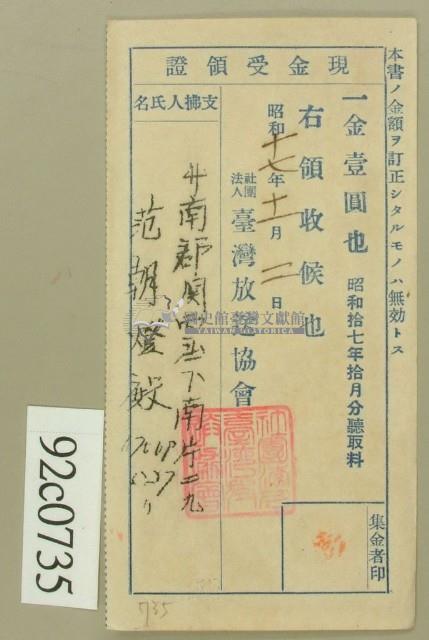 本書ノ金額ヲ訂正シタルモノハ無効トス
現金受領證
一金壹圓也 昭和拾七年拾月分聽取料
右領收候也
昭和十七年十一月二日
社團法人臺灣放送協會
集金者印
支拂人氏名
南郡
下南片二九
范朝燈殿
國史館臺灣文獻館
TAIWAN HISTORICA
735
92c0735